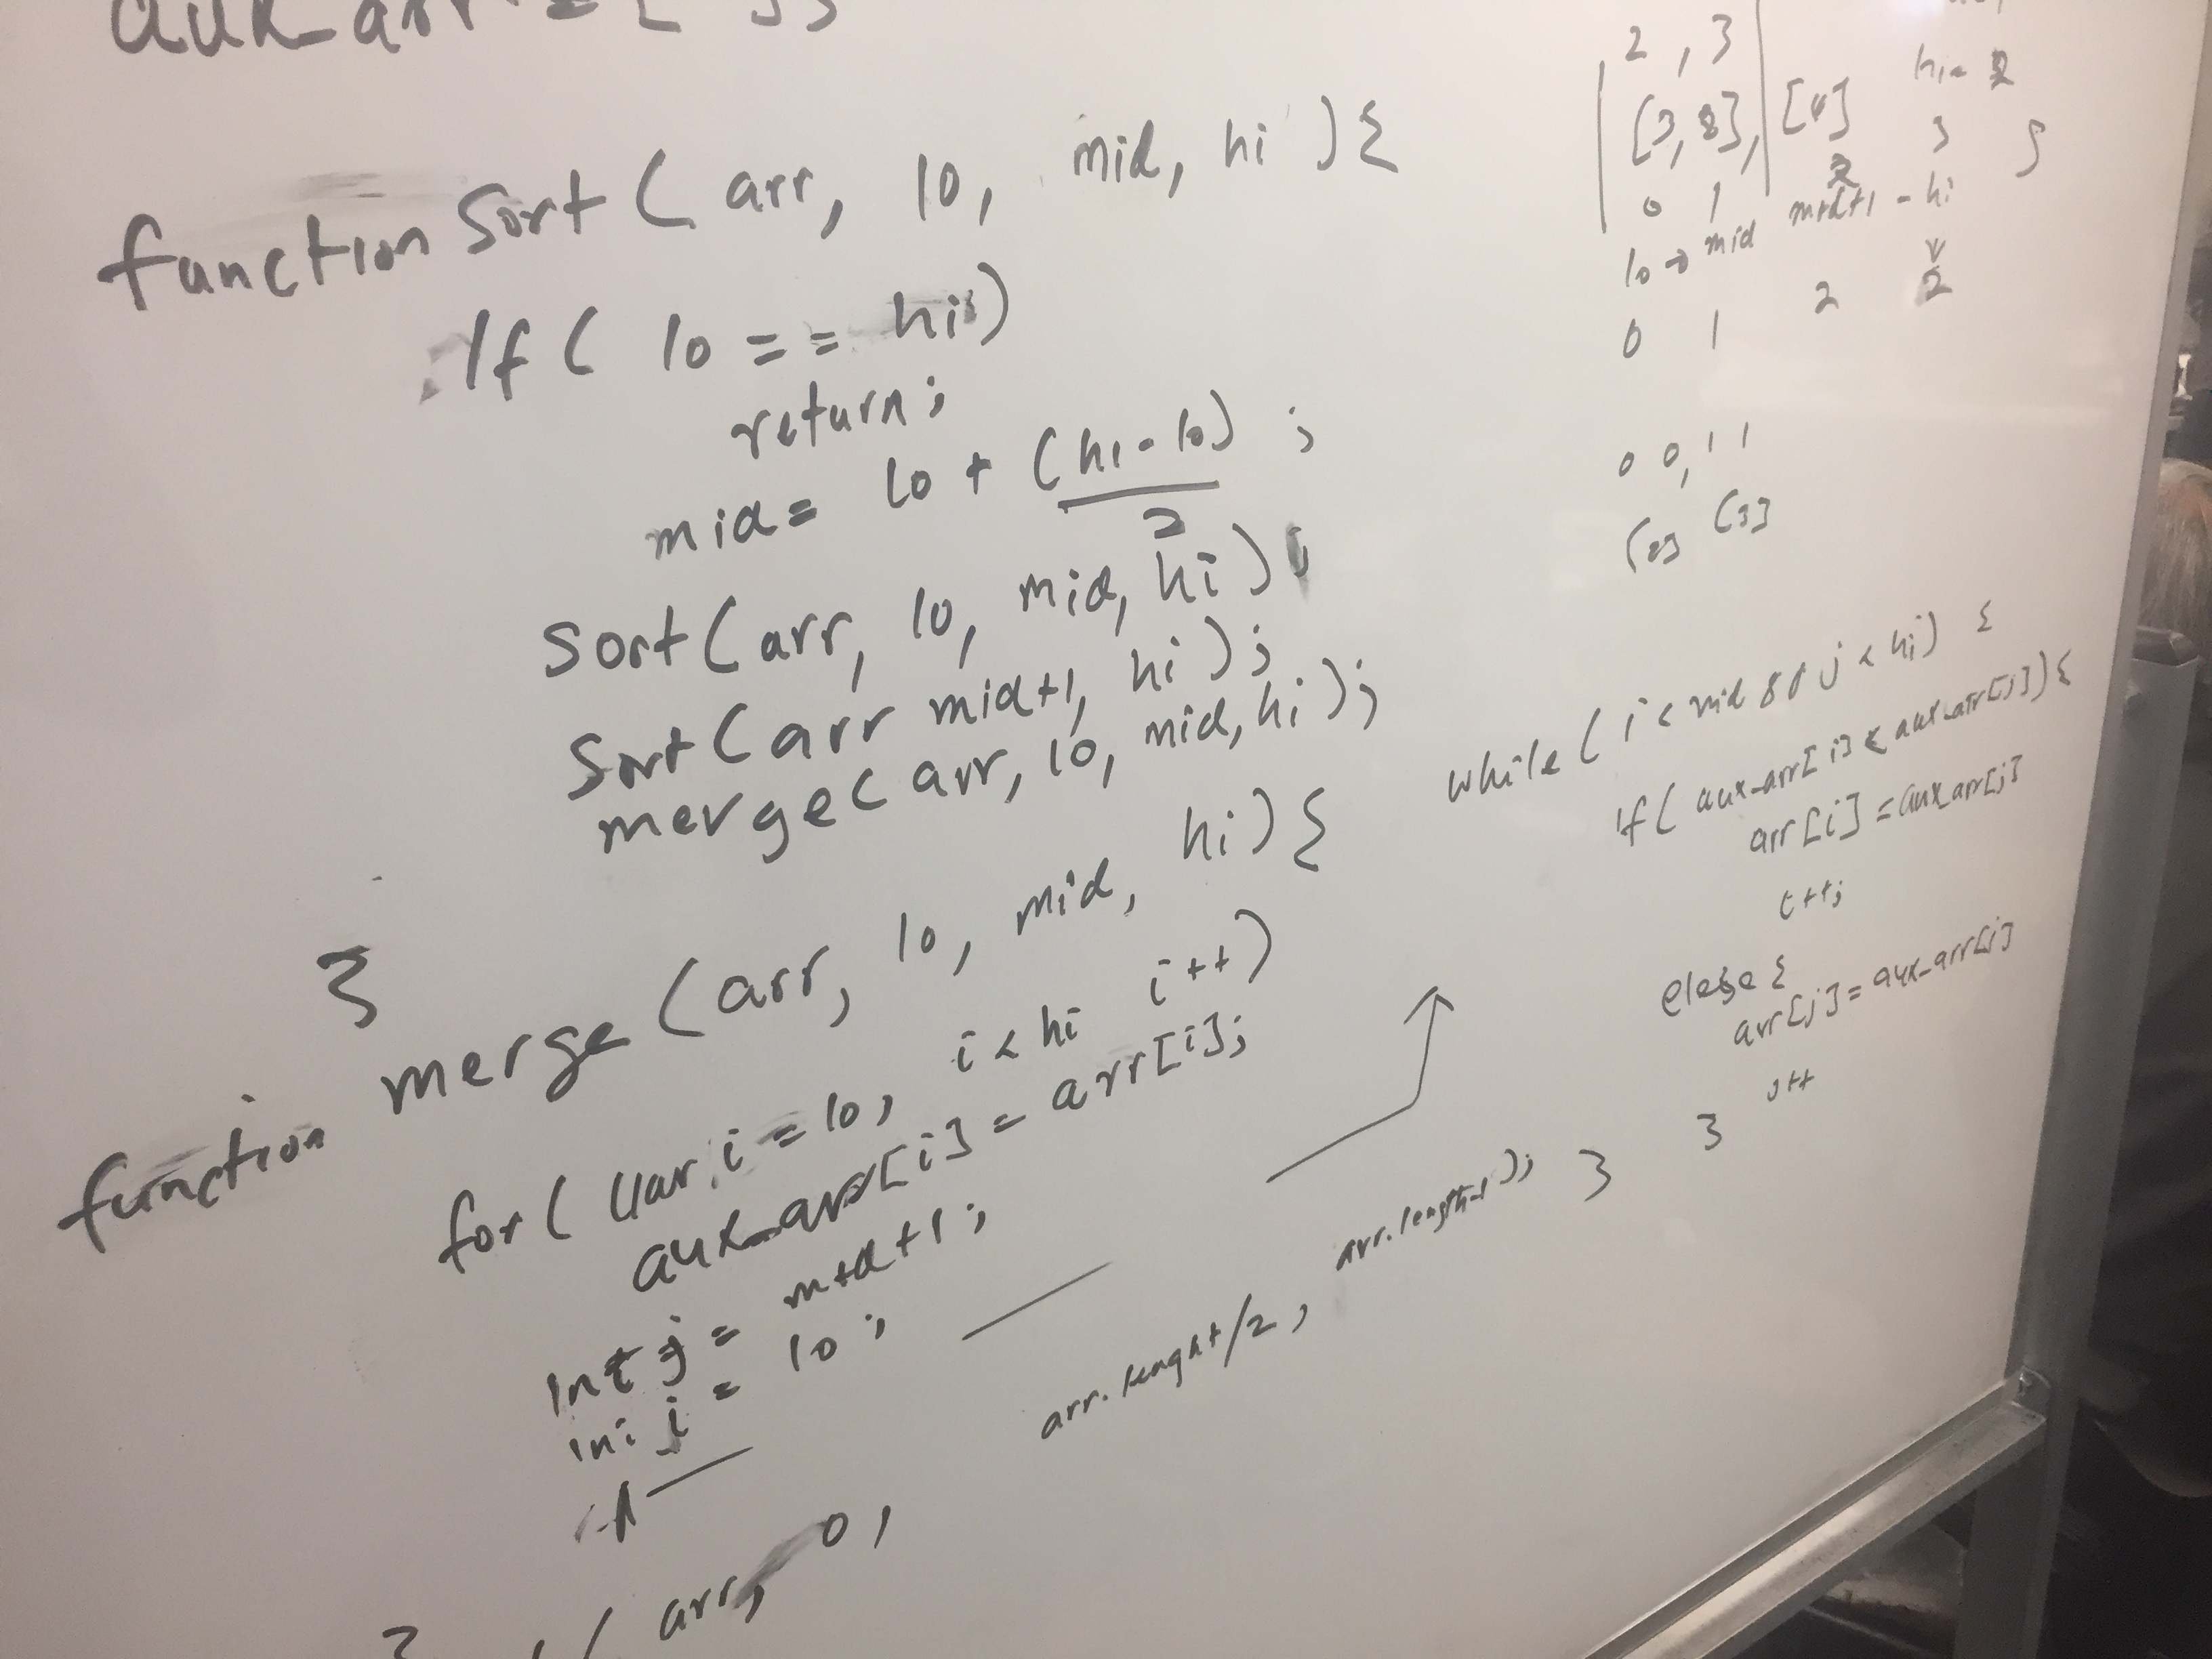 aux_arr = [ ];
function Sort ( arr, lo, mid, hi ) {
If ( lo == hi )
return;
mid = lo + (hi - lo) ;
2
Sort ( arr, lo, mid, hi ) ;
Sort ( arr mid+1, hi ) ;
merge ( arr, lo, mid, hi ) ;
}
function merge ( arr, lo, mid, hi ) {
for ( var i = lo, i < hi i++ )
aux_arr[i] = arr[i];
Int j = mid+1 ;
Ini i = lo ;
arr.lenght/2 , arr.length-1 );
( arr, 0 ,
2 , 3
[3, 8], [4]
hi-
3
0 1
lo → mid mid+1 - hi
0 1 2 2
0 0, 1 1
[3]
while ( i < mid && j < hi ) {
If ( aux_arr[i] < aux_arr[j] ) {
arr[i] = aux_arr[j]
i++;
else {
arr[j] = aux_arr[j]
j++
}
}